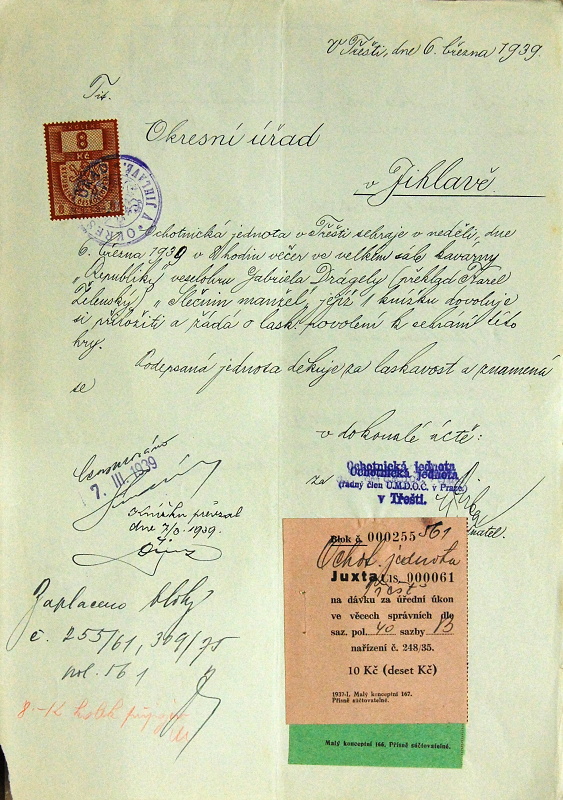 V Třešti, dne 6. března 1939.
Tit.
Okresní úřad
v Jihlavě.
KOLEK
8
Kč
Ochotnická jednota v Třešti sehraje v neděli, dne
6. března 1939 v hodin večer ve velkém sále kavárny
„Republiky" veselohru Gabriela Drágely (překlad Karel
Želenský) „Slečnin manžel, jejíž 1 knížku dovoluje
si přiložiti a žádá o lask. povolení k sehrání této
hry.
Podepsaná jednota děkuje za laskavost a znamená
se
v dokonalé úctě:
za
Ochotnická jednota
Ochotnická jednota
(řádný člen Ú.M.D.O.Č. v Praze)
v Třešti.
Censurováno
7. III. 1939
Knížku převzal
dne 7/3. 1939.
Zaplaceno bloky
č. 255/61, 309/75
pol. 161
8.-K kolek
Blok č. 000255 561
Ochot. jednota
Juxta LIS. 000061
Třešť
na dávku za úřední úkon
ve věcech správních dle
saz. pol. 40 sazby B
nařízení č. 248/35.
10 Kč (deset Kč)
1937-I. Malý konceptní 167.
Přísně súčtovatelné.
Malý konceptní 166. Přísně súčtovatelné.